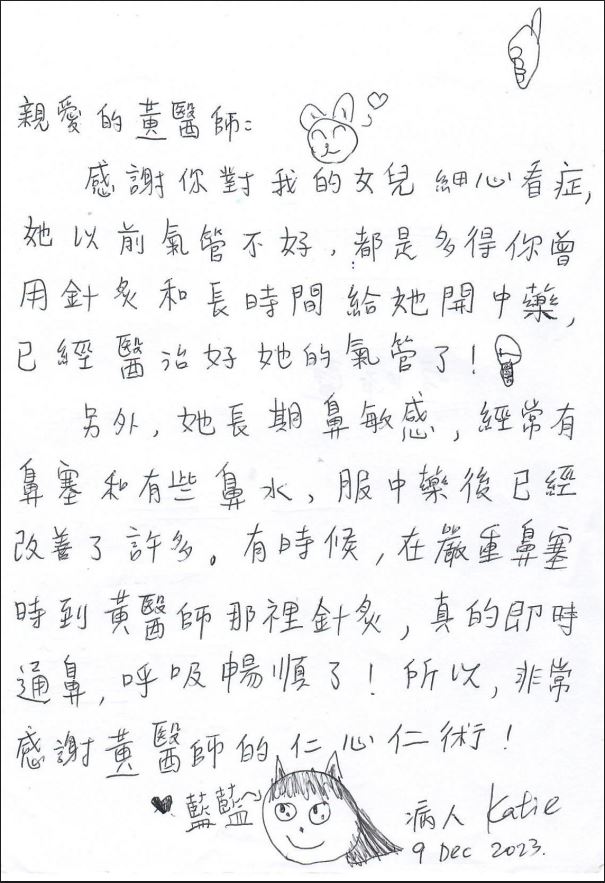 親愛的黃醫師：
感謝你對我的女兒細心看症，
她以前氣管不好，都是多得你曾
用針炙和長時間給她開中藥，
已經醫治好她的氣管了！
另外，她長期鼻敏感，經常有
鼻塞和有些鼻水，服中藥後已經
改善了許多。有時候，在嚴重鼻塞
時到黃醫師那裡針炙，真的即時
通鼻，呼吸暢順了！所以，非常
感謝黃醫師的仁心仁術！
藍藍
病人 Katie
9 Dec 2023.